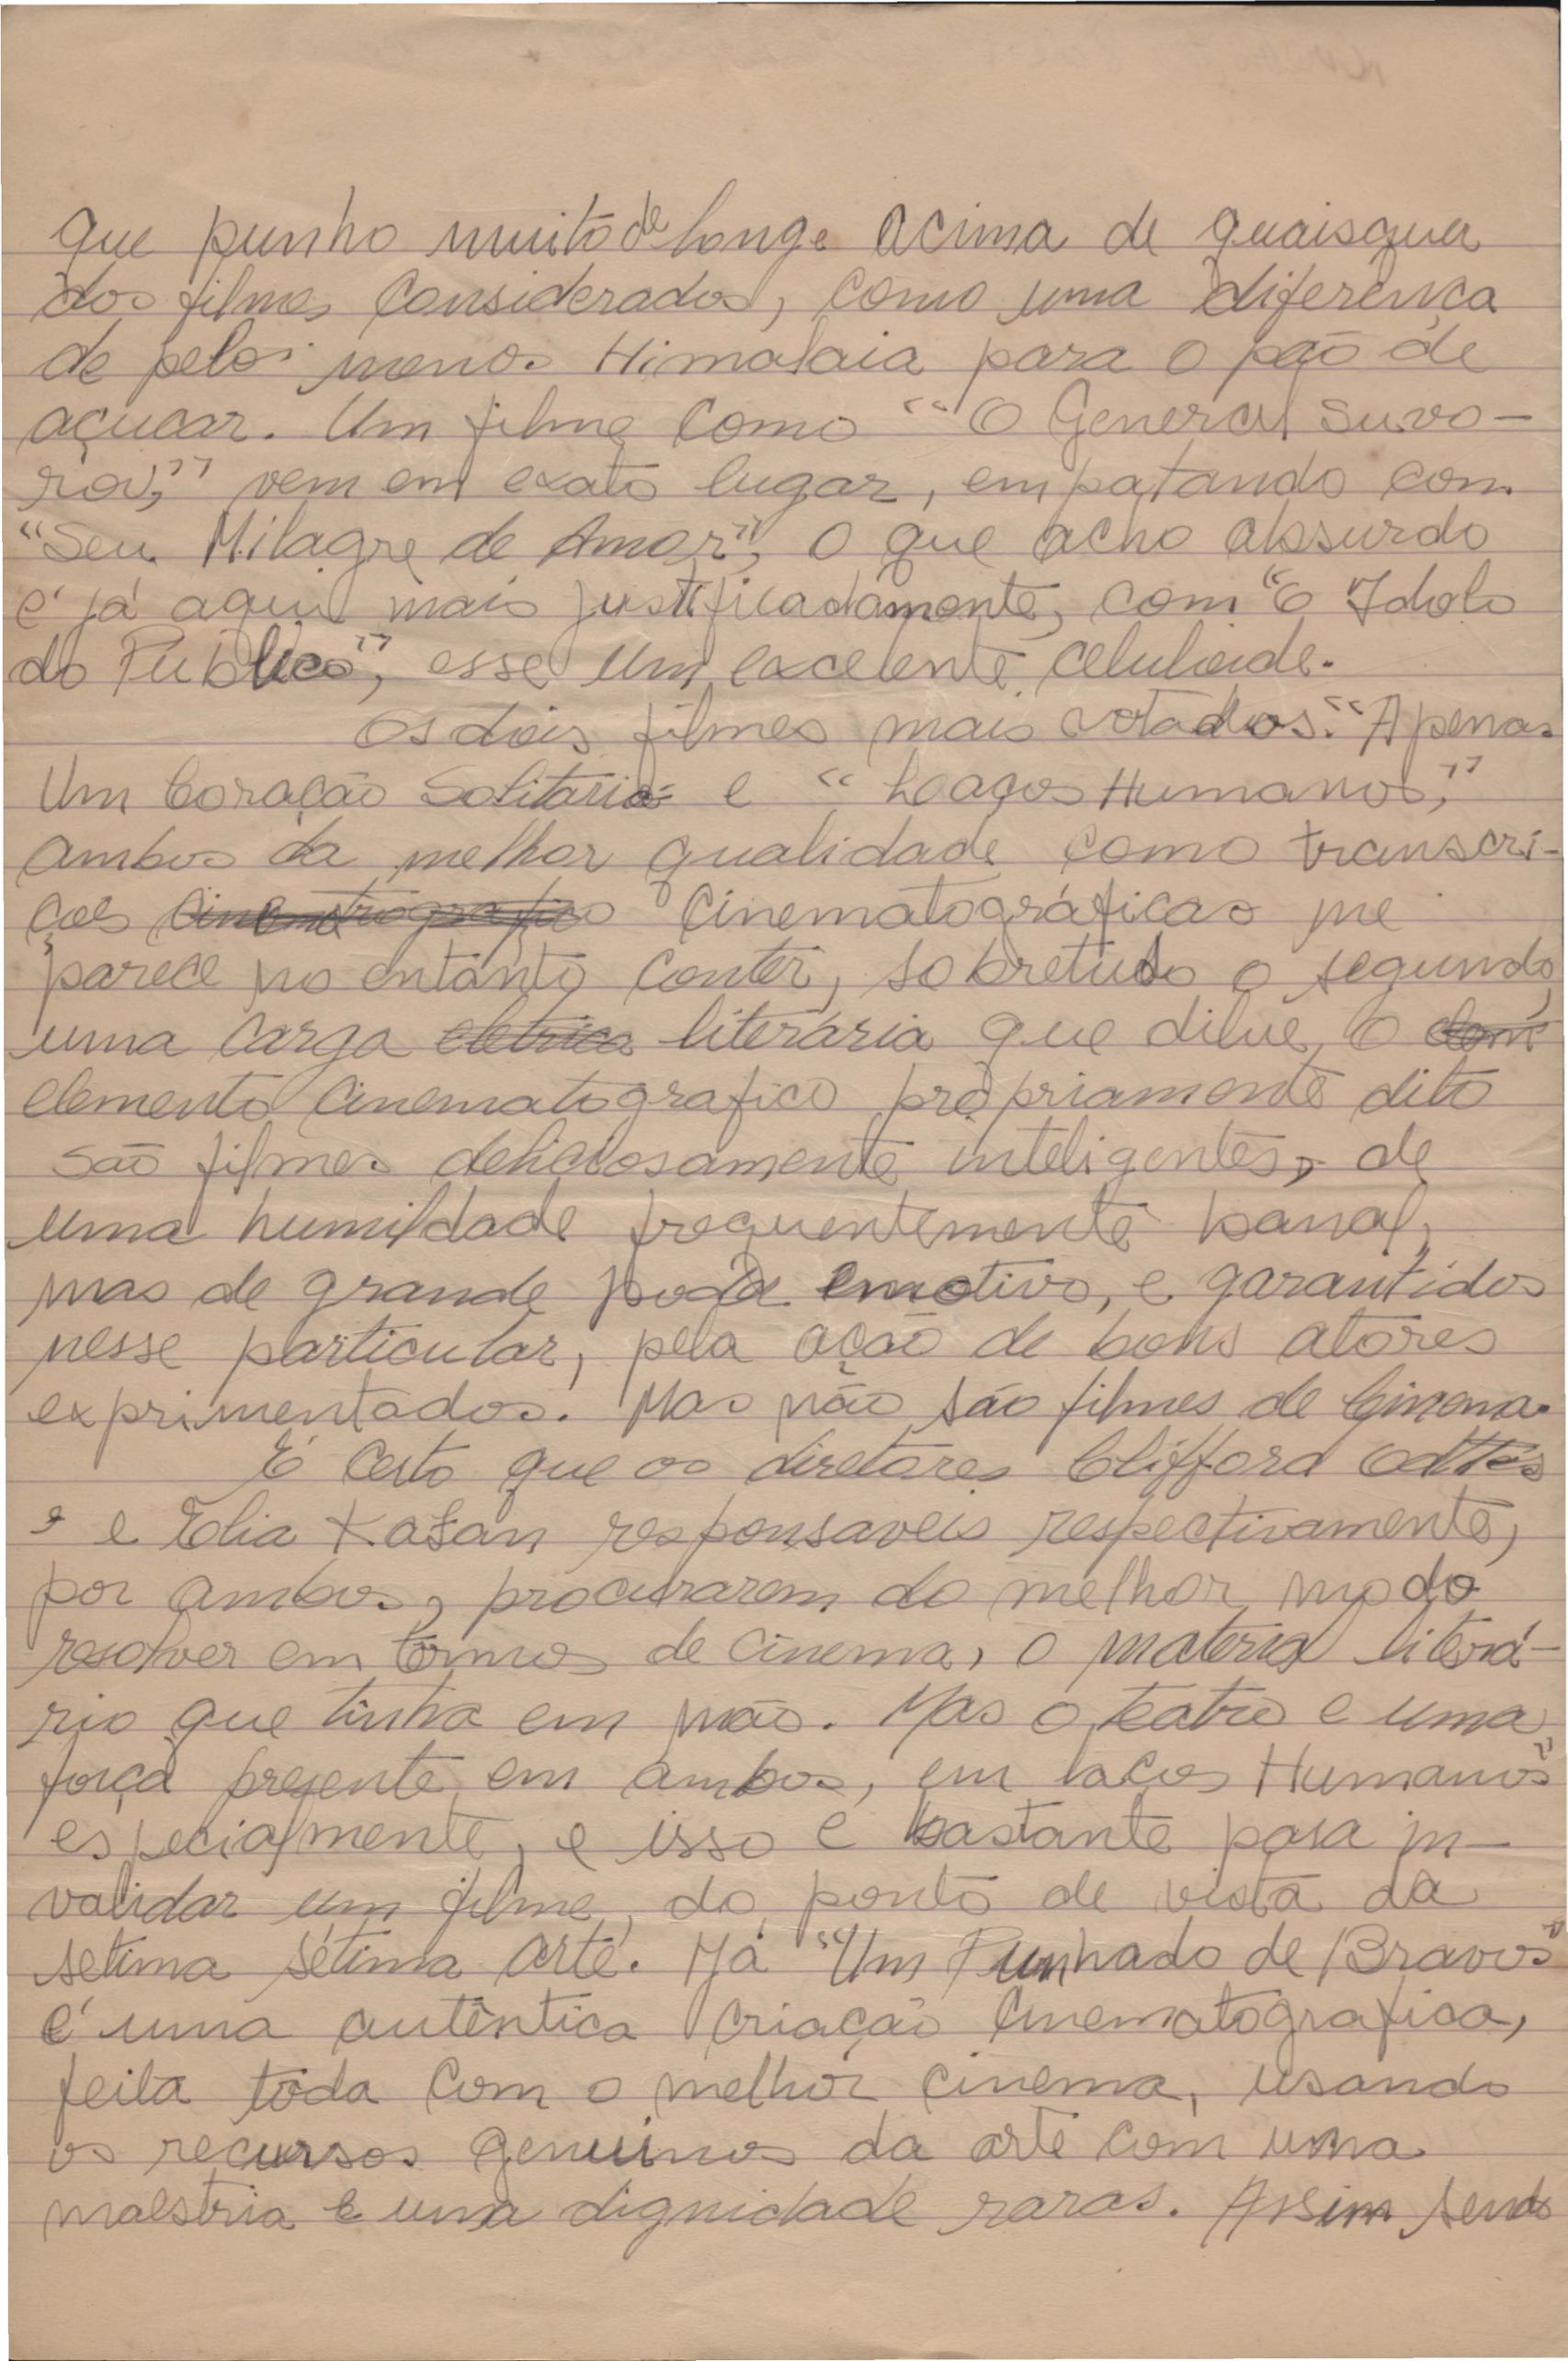 que punho muito de longe acima de quaisquer
dos filmes considerados, como uma diferença
de pelo menos Himalaia para o pão de
açucar. Um filme como "O General Suvo-
rov," vem em exato lugar, empatando com
"Seu Milagre de Amor", o que acho absurdo
e já aqui mais justificadamente, com "O Idolo
do Publico", esse um excelente celuloide.
Os dois filmes mais votados: "Apenas
Um Coração Solitario e "Laços Humanos,"
ambos da melhor qualidade como transcri-
ções cinematrografico cinematográficas me
parece no entanto conter, sobretudo o segundo,
uma carga eletrica literária que dilue, o elem
elemento cinematografico pròpriamente dito
São filmes deliciosamente inteligentes, de
uma humildade frequentemente banal,
mas de grande poder emotivo, e garantidos
nesse particular, pela ação de bons atores
exprimentados. Mas não são filmes de Cinema.
É certo que os diretores Clifford Odtes
e Elia Kasan responsaveis respectivamente,
por ambos, procurarem do melhor modo
resolver em têrmos de cinema, o material literá-
rio que tinha em mão. Mas o teatro e uma
força presente em ambos, em laços Humanos"
especialmente, e isso e bastante para in-
validar um filme, do ponto de vista da
setima sétima arte. Já "Um Punhado de Bravos"
é uma autêntica criação cinematografica,
feita tôda com o melhor cinema, usando
os recursos genuinos da arte com uma
maestria e uma dignidade raras. Assim sendo